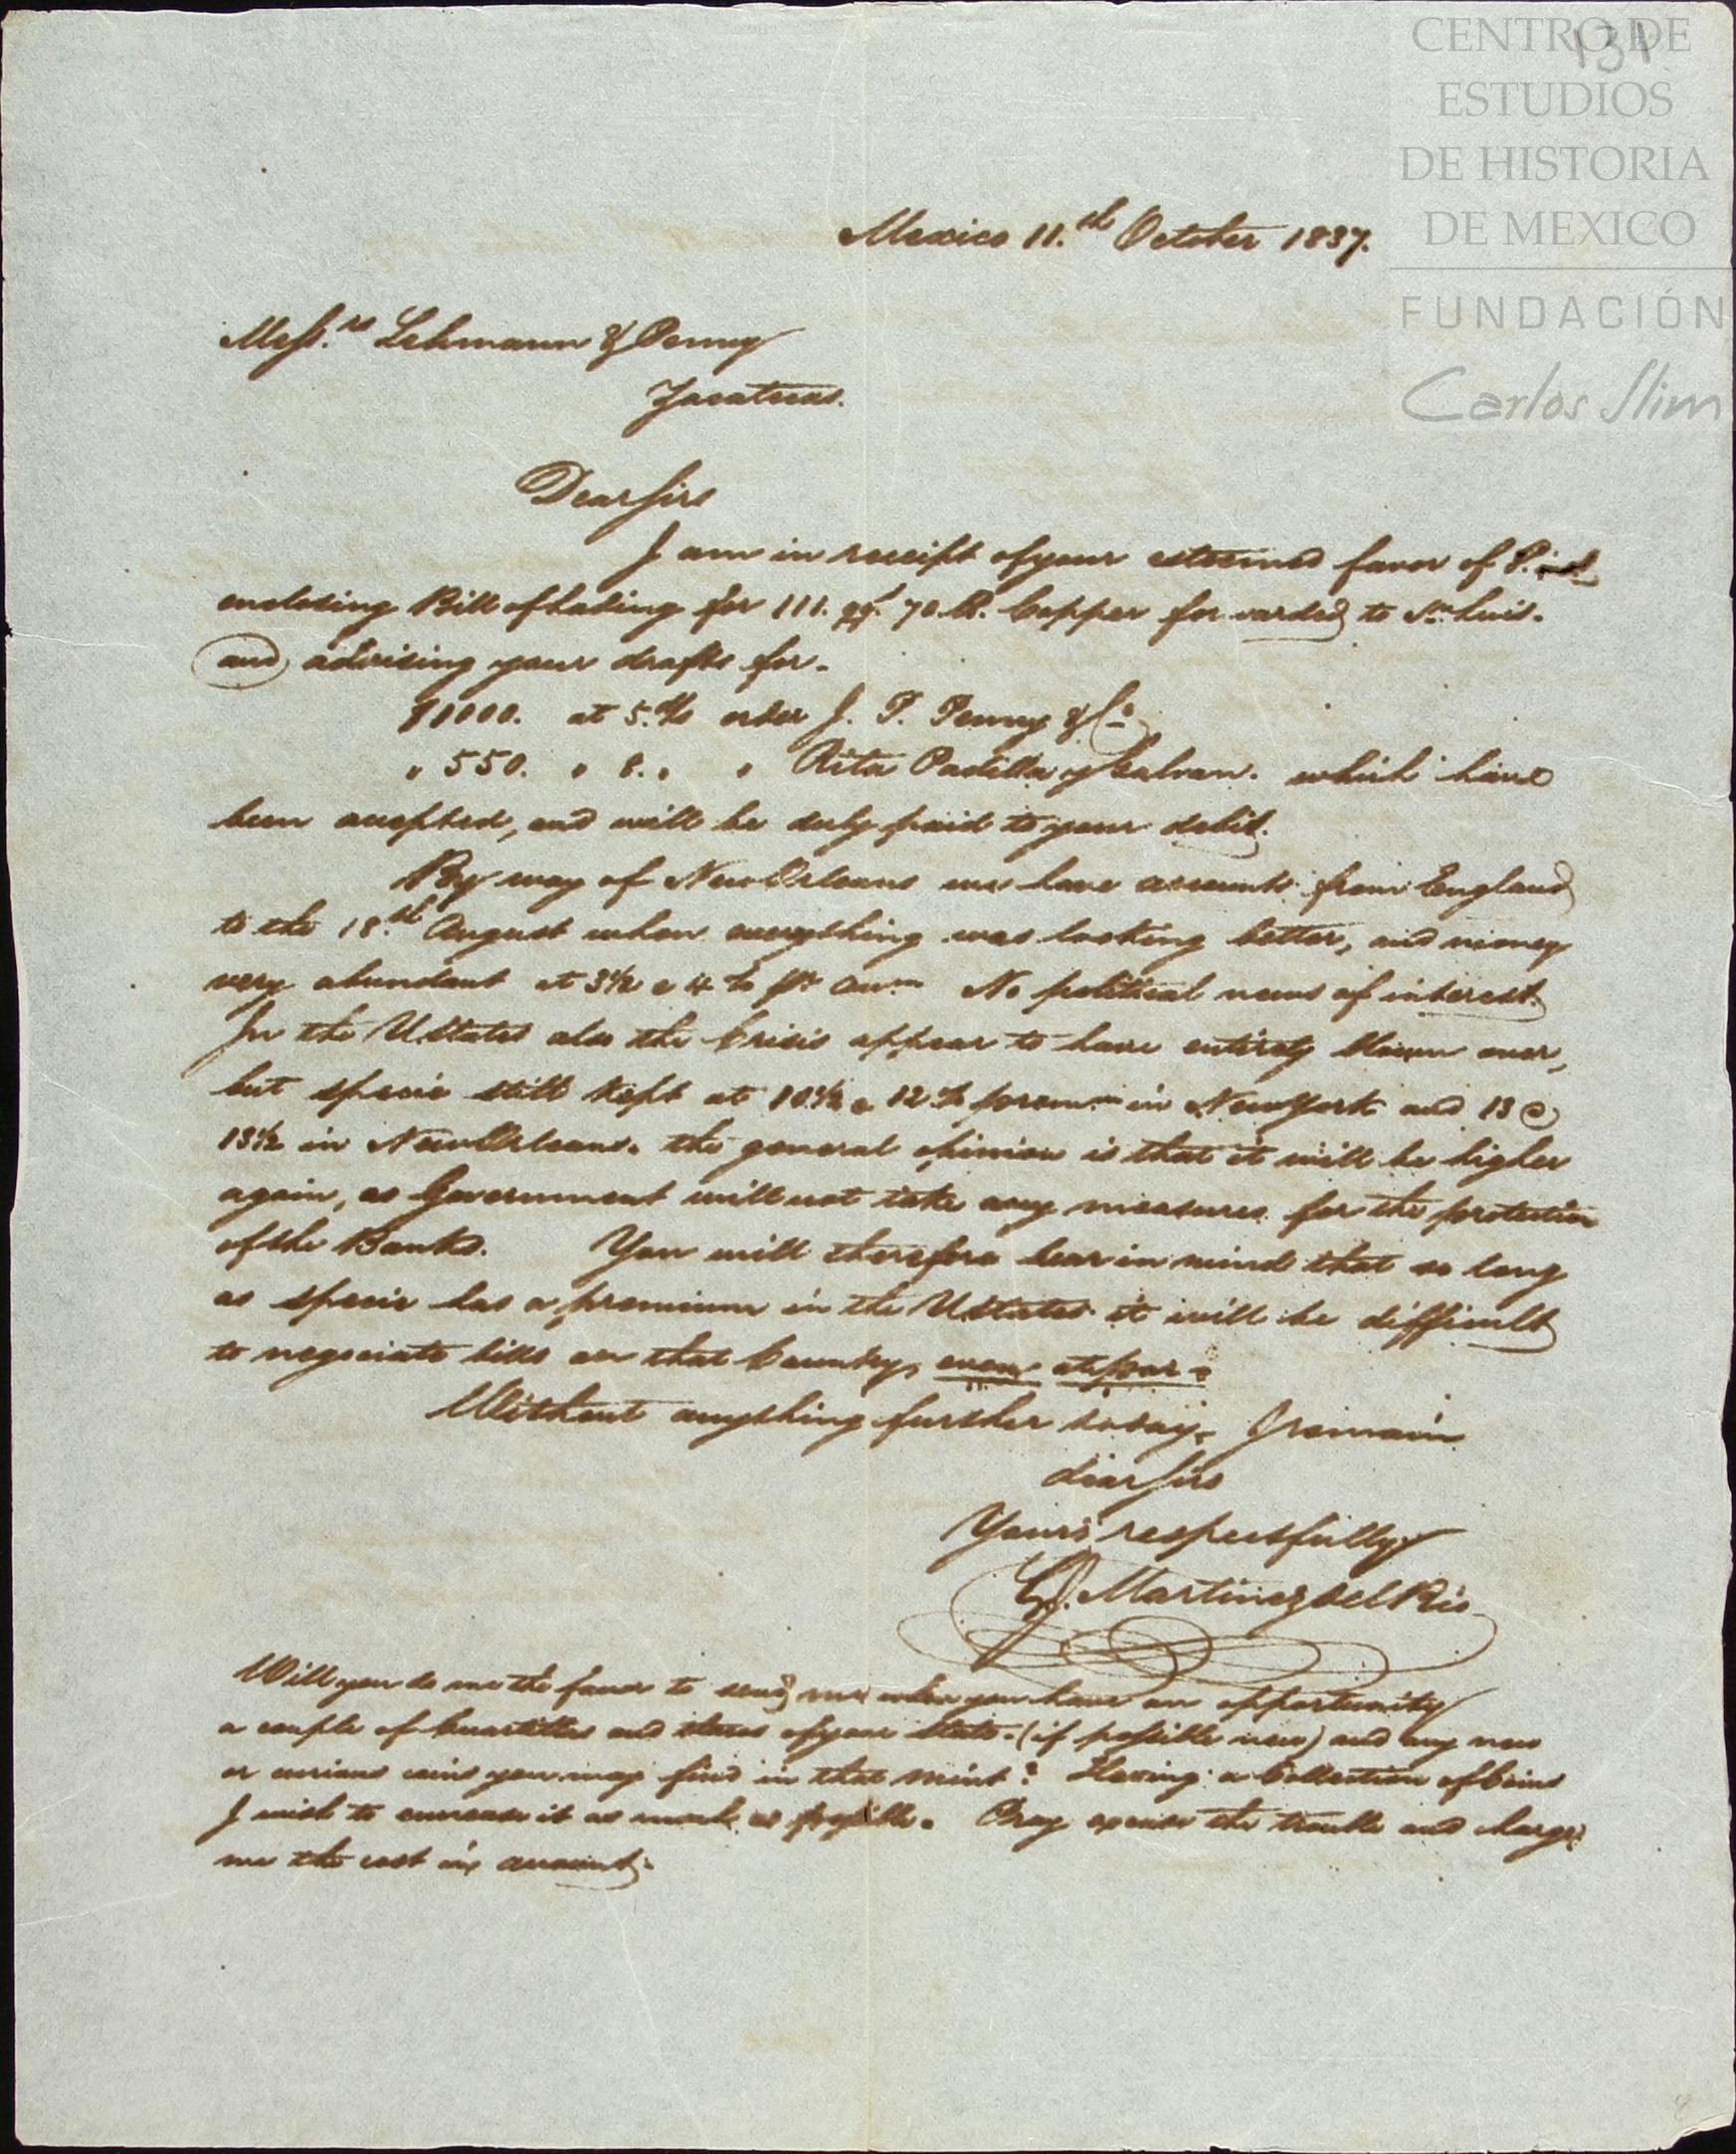 CENTRO DE
ESTUDIOS
DE HISTORIA
DE MEXICO
FUNDACIÓN
Carlos Slim
131
Mexico 11.th October 1837.
Mess.rs Lehmann & Penny
Zacatecas.
Dear Sirs
I am in receipt of your esteemed favor of
enclosing Bill of Lading for 111. qq.s 70 lb. Copper forwarded to Sn. Luis.
and advising your drafts for.
$1000. at 5. d/s order J. P. Penny & Co.
" 550. " 8. " " Rita Padilla y Galvan. which have
been accepted, and will be duly paid to your debit.
By way of New Orleans we have accounts from England
to the 18.th August when everything was looking better, and money
very abundant at 3½ a 4 % pr. Ann.m No political news of interest.
In the UStates also the Crisis appear to have entirely blown over,
but specie still kept at 10½ a 12 % prem.m in New York and 13 @
13½ in New Orleans. the general opinion is that it will be higher
again, as Government will not take any measures for the protection
of the Banks. You will therefore bear in mind that so long
as specie has a premium in the UStates it will be difficult
to negociate bills on that Country, even at par.
Without anything further today, I remain
dear Sirs
Yours respectfully
G. Martinez del Rio
Will you do me the favor to send me when you have an opportunity
a couple of Cuartillas and tlacos of your State. (if possible new) and any new
or curious coins you may find in that mint? Having a Collection of Coins
I wish to encrease it as much as possible. Pray excuse the trouble and charge
me the cost in account.